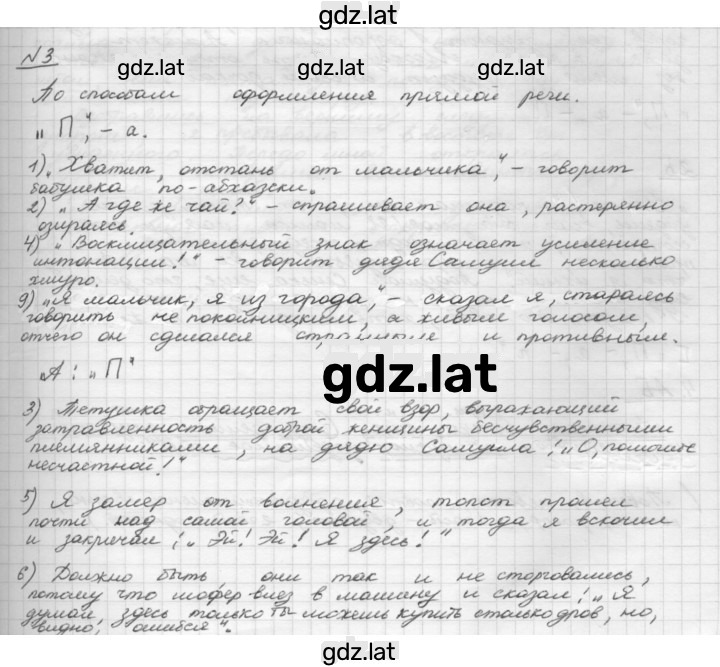 gdz.lat
№3
gdz.lat gdz.lat
По способам оформления прямой речи.
„П“, – а.
1) „Хватит, отстань от мальчика“, – говорит
бабушка по-абхазски.
2) „А где же чай?“ – спрашивает она, растерянно
озираясь.
4) „Восклицательный знак означает усиление
интонации!“ – говорит дядя Самуил несколько
хмуро.
9) „Я мальчик, я из города“, – сказал я, стараясь
говорить не покойницким, а живым голосом,
отчего он сделался и противным.
А: „П“
gdz.lat
3) Тетушка обращает свой взор, выражающий
затравленность доброй женщины бесчувственными
племянниками, на дядю Самуила: „О, помогите
несчастной!“
5) Я замер от волнения, топот прошел
почти над самой головой, и тогда я вскочил
и закричал: „Эй! Эй! Я здесь!“
6) Должно быть, они так и не сторговались,
потому что шофер влез в машину и сказал: „Я
думал, здесь только ты можешь купить столько дров, но,
видно, ошибся“.
gdz.lat